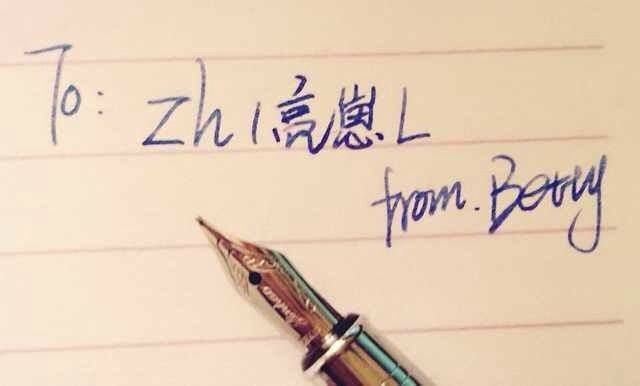 To: Zhi高崽L
from. Betty